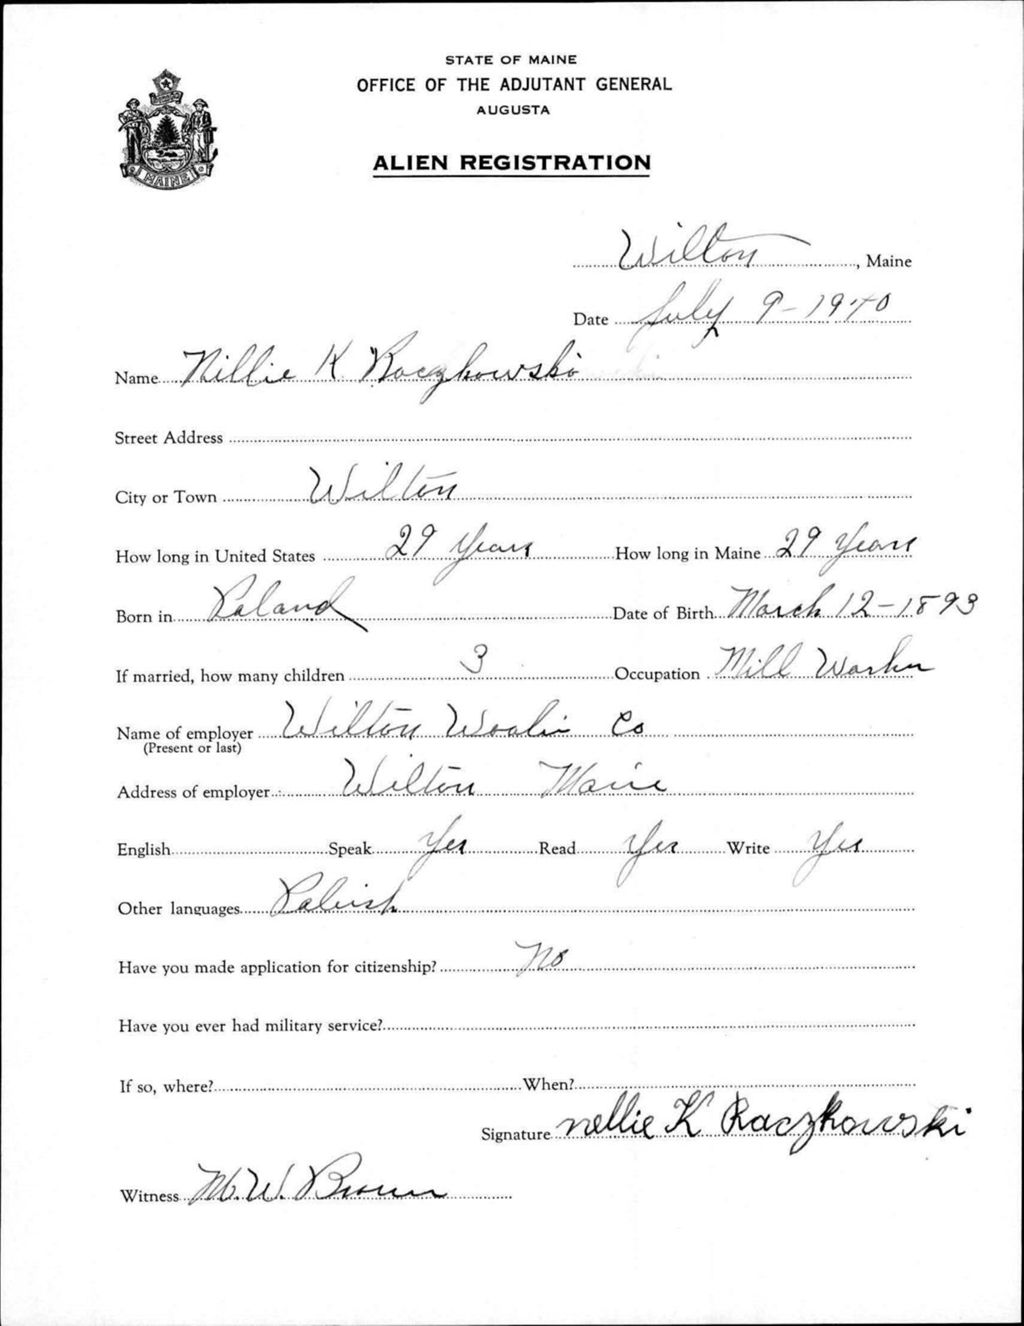 STATE OF MAINE
OFFICE OF THE ADJUTANT GENERAL
AUGUSTA
ALIEN REGISTRATION
MAINE
Wilton, Maine
Date July 9-1940
Name Nillie K Raczkowski
Street Address
City or Town Wilton
How long in United States 29 Years How long in Maine 29 Years
Born in Poland Date of Birth March 12-1893
If married, how many children 3 Occupation Mill Worker
Name of employer Wilton Woolin Co
(Present or last)
Address of employer Wilton Maine
English Speak Yes Read Yes Write Yes
Other languages Polish
Have you made application for citizenship? No
Have you ever had military service?
If so, where? When?
Signature nellie K Raczkowski
Witness M. W. Brown